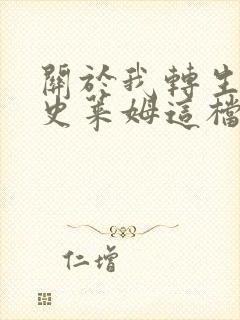 關於我轉生
史萊姆這檔
仁增